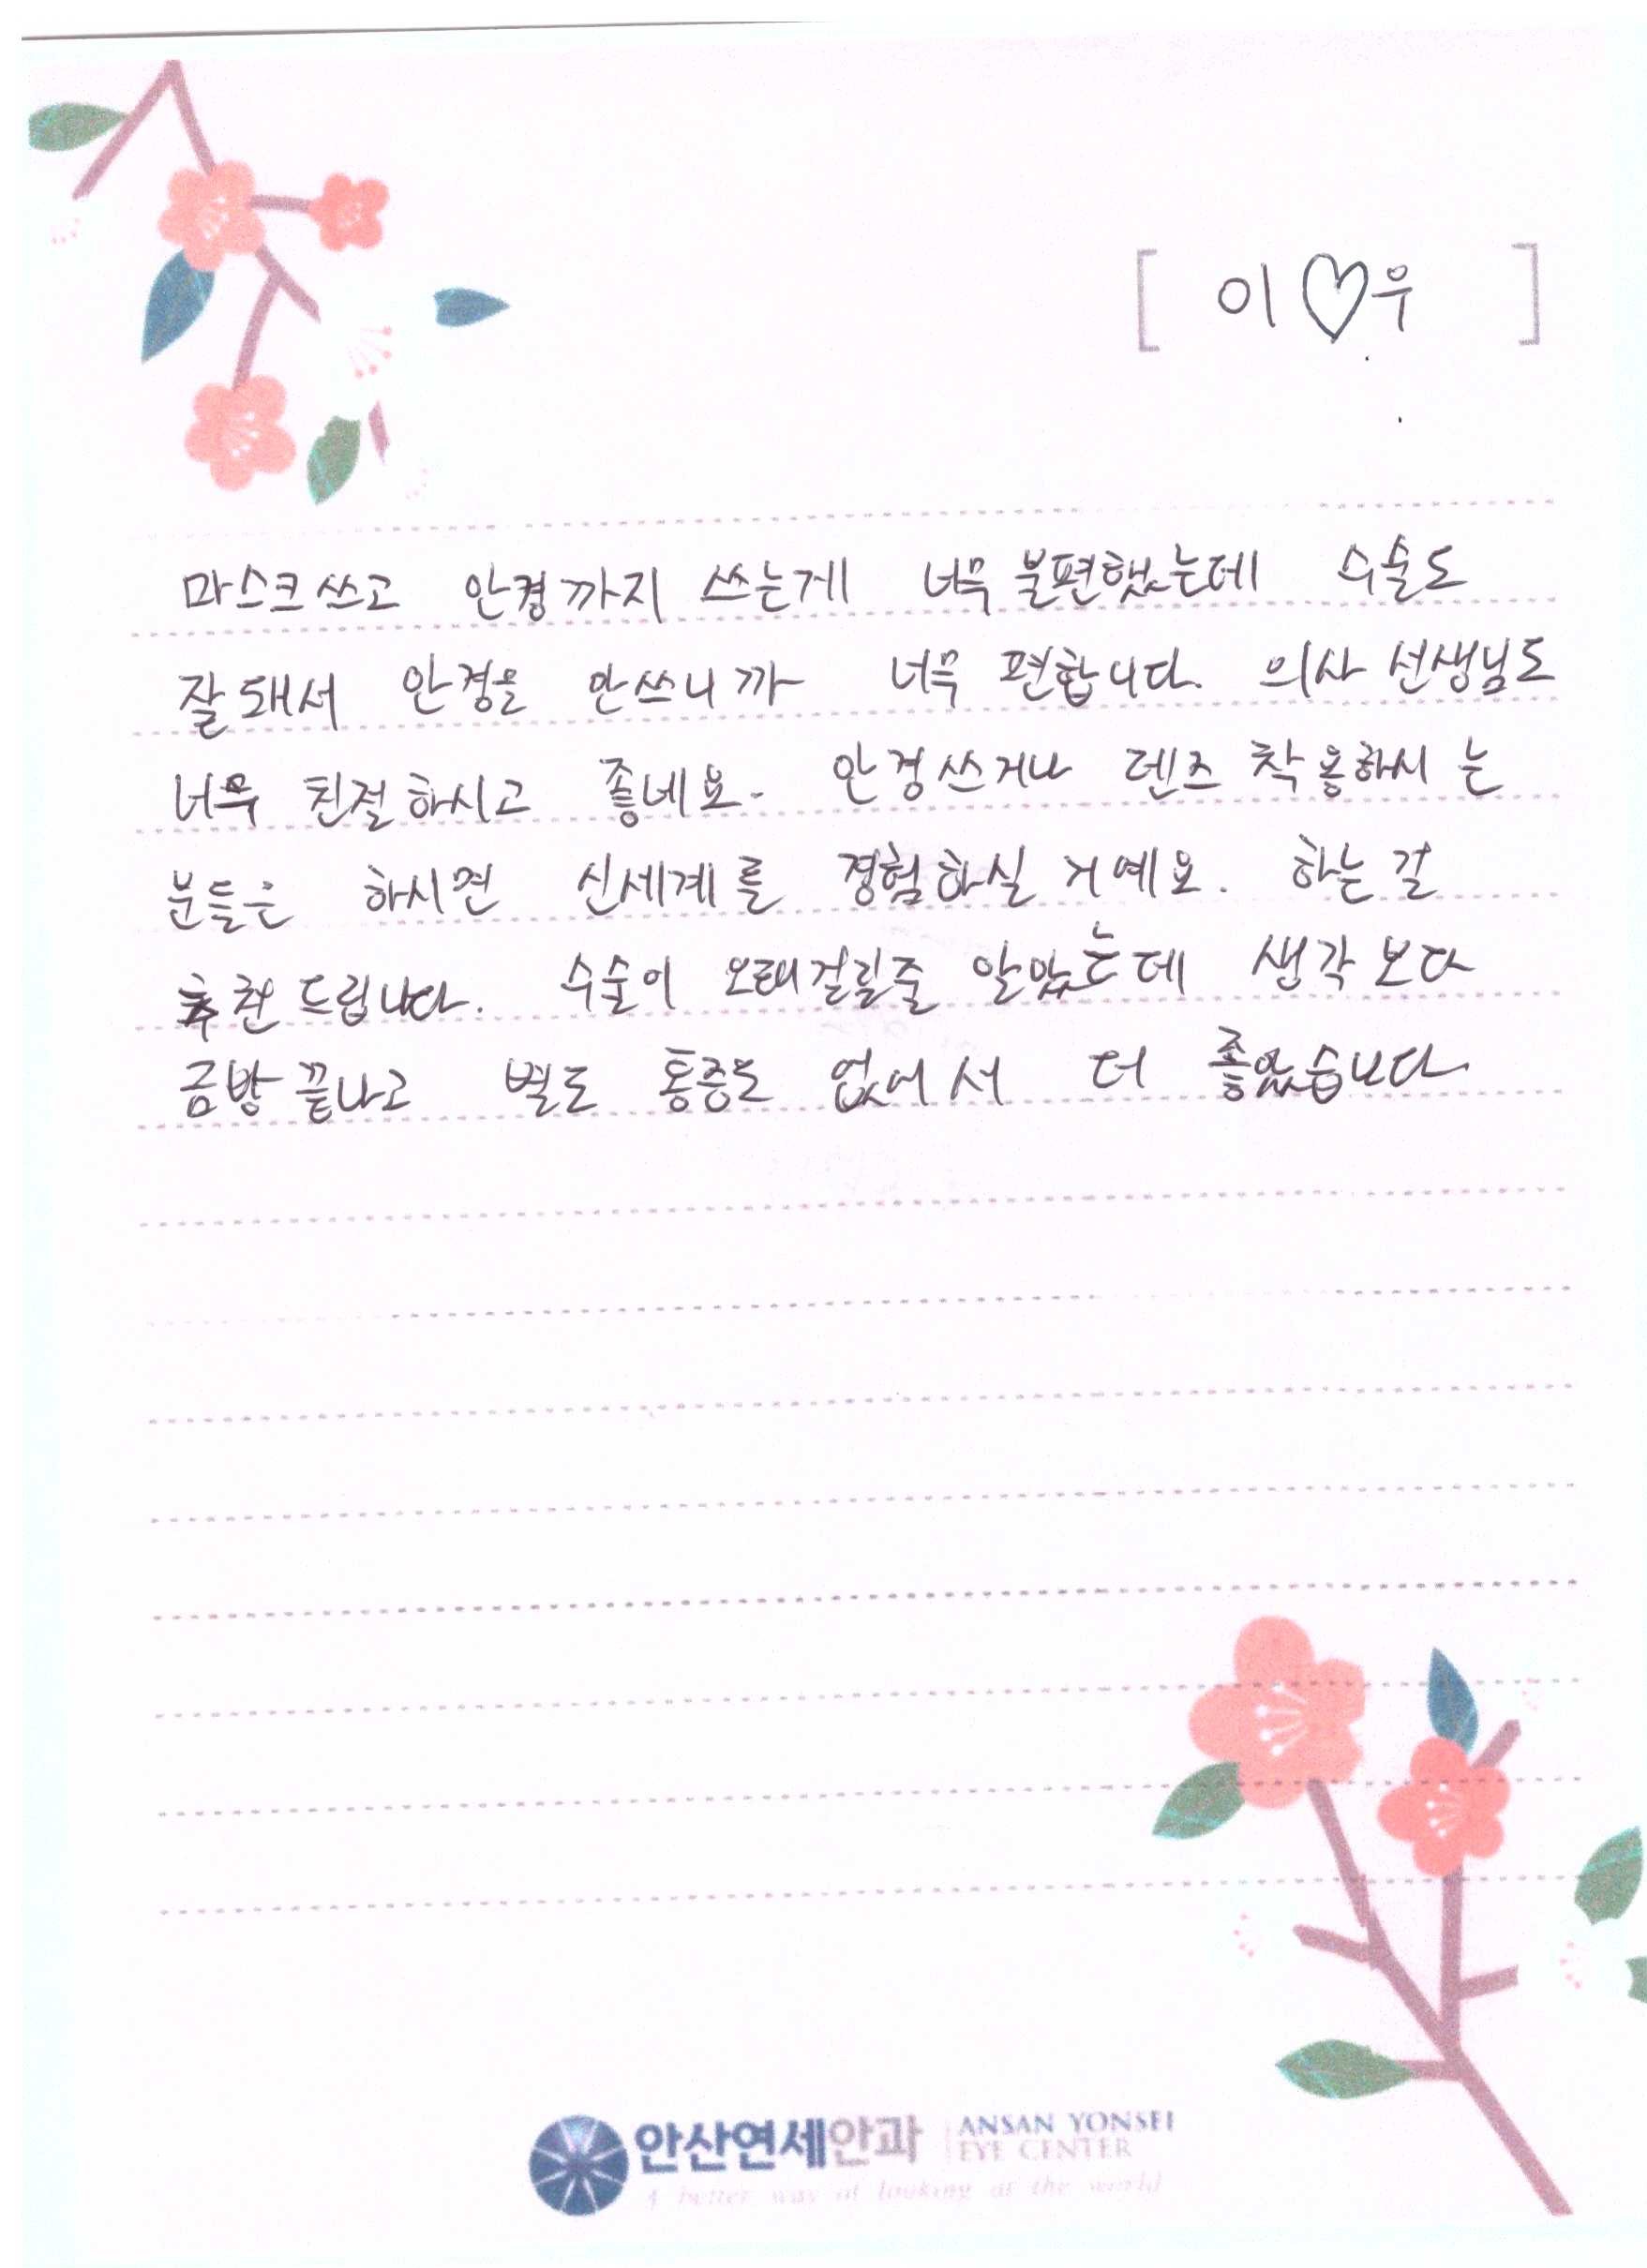 [ 이♡우 ]
마스크쓰고 안경까지 쓰는게 너무 불편했는데 수술도
잘돼서 안경을 안쓰니까 너무 편합니다. 의사 선생님도
너무 친절하시고 좋네요. 안경쓰거나 렌즈 착용하시는
분들은 하시면 신세계를 경험하실 거예요. 하는걸
추천드립니다. 수술이 오래걸릴줄 알았는데 생각보다
금방끝나고 별도 통증도 없어서 더 좋았습니다
안산연세안과 ANSAN YONSEI
EYE CENTER
A better way of looking at the world